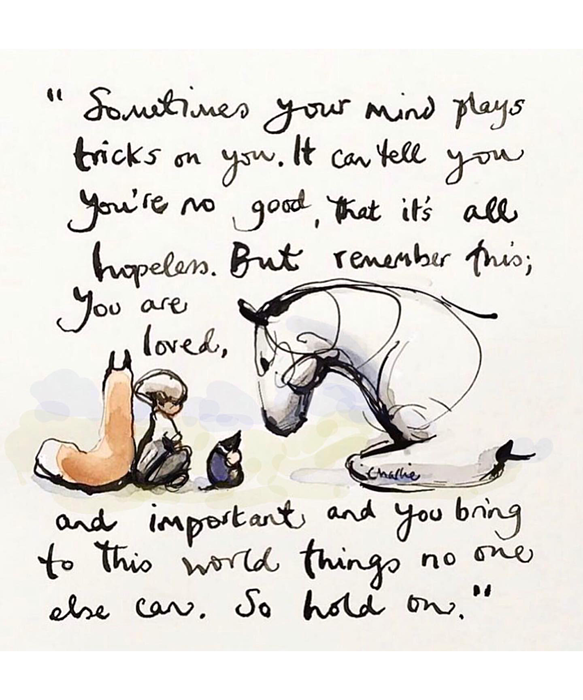 " Sometimes your mind plays
tricks on you. It can tell you
you're no good, that it's all
hopeless. But remember this;
You are
loved,
Charlie
and important and you bring
to this world things no one
else can. So hold on."